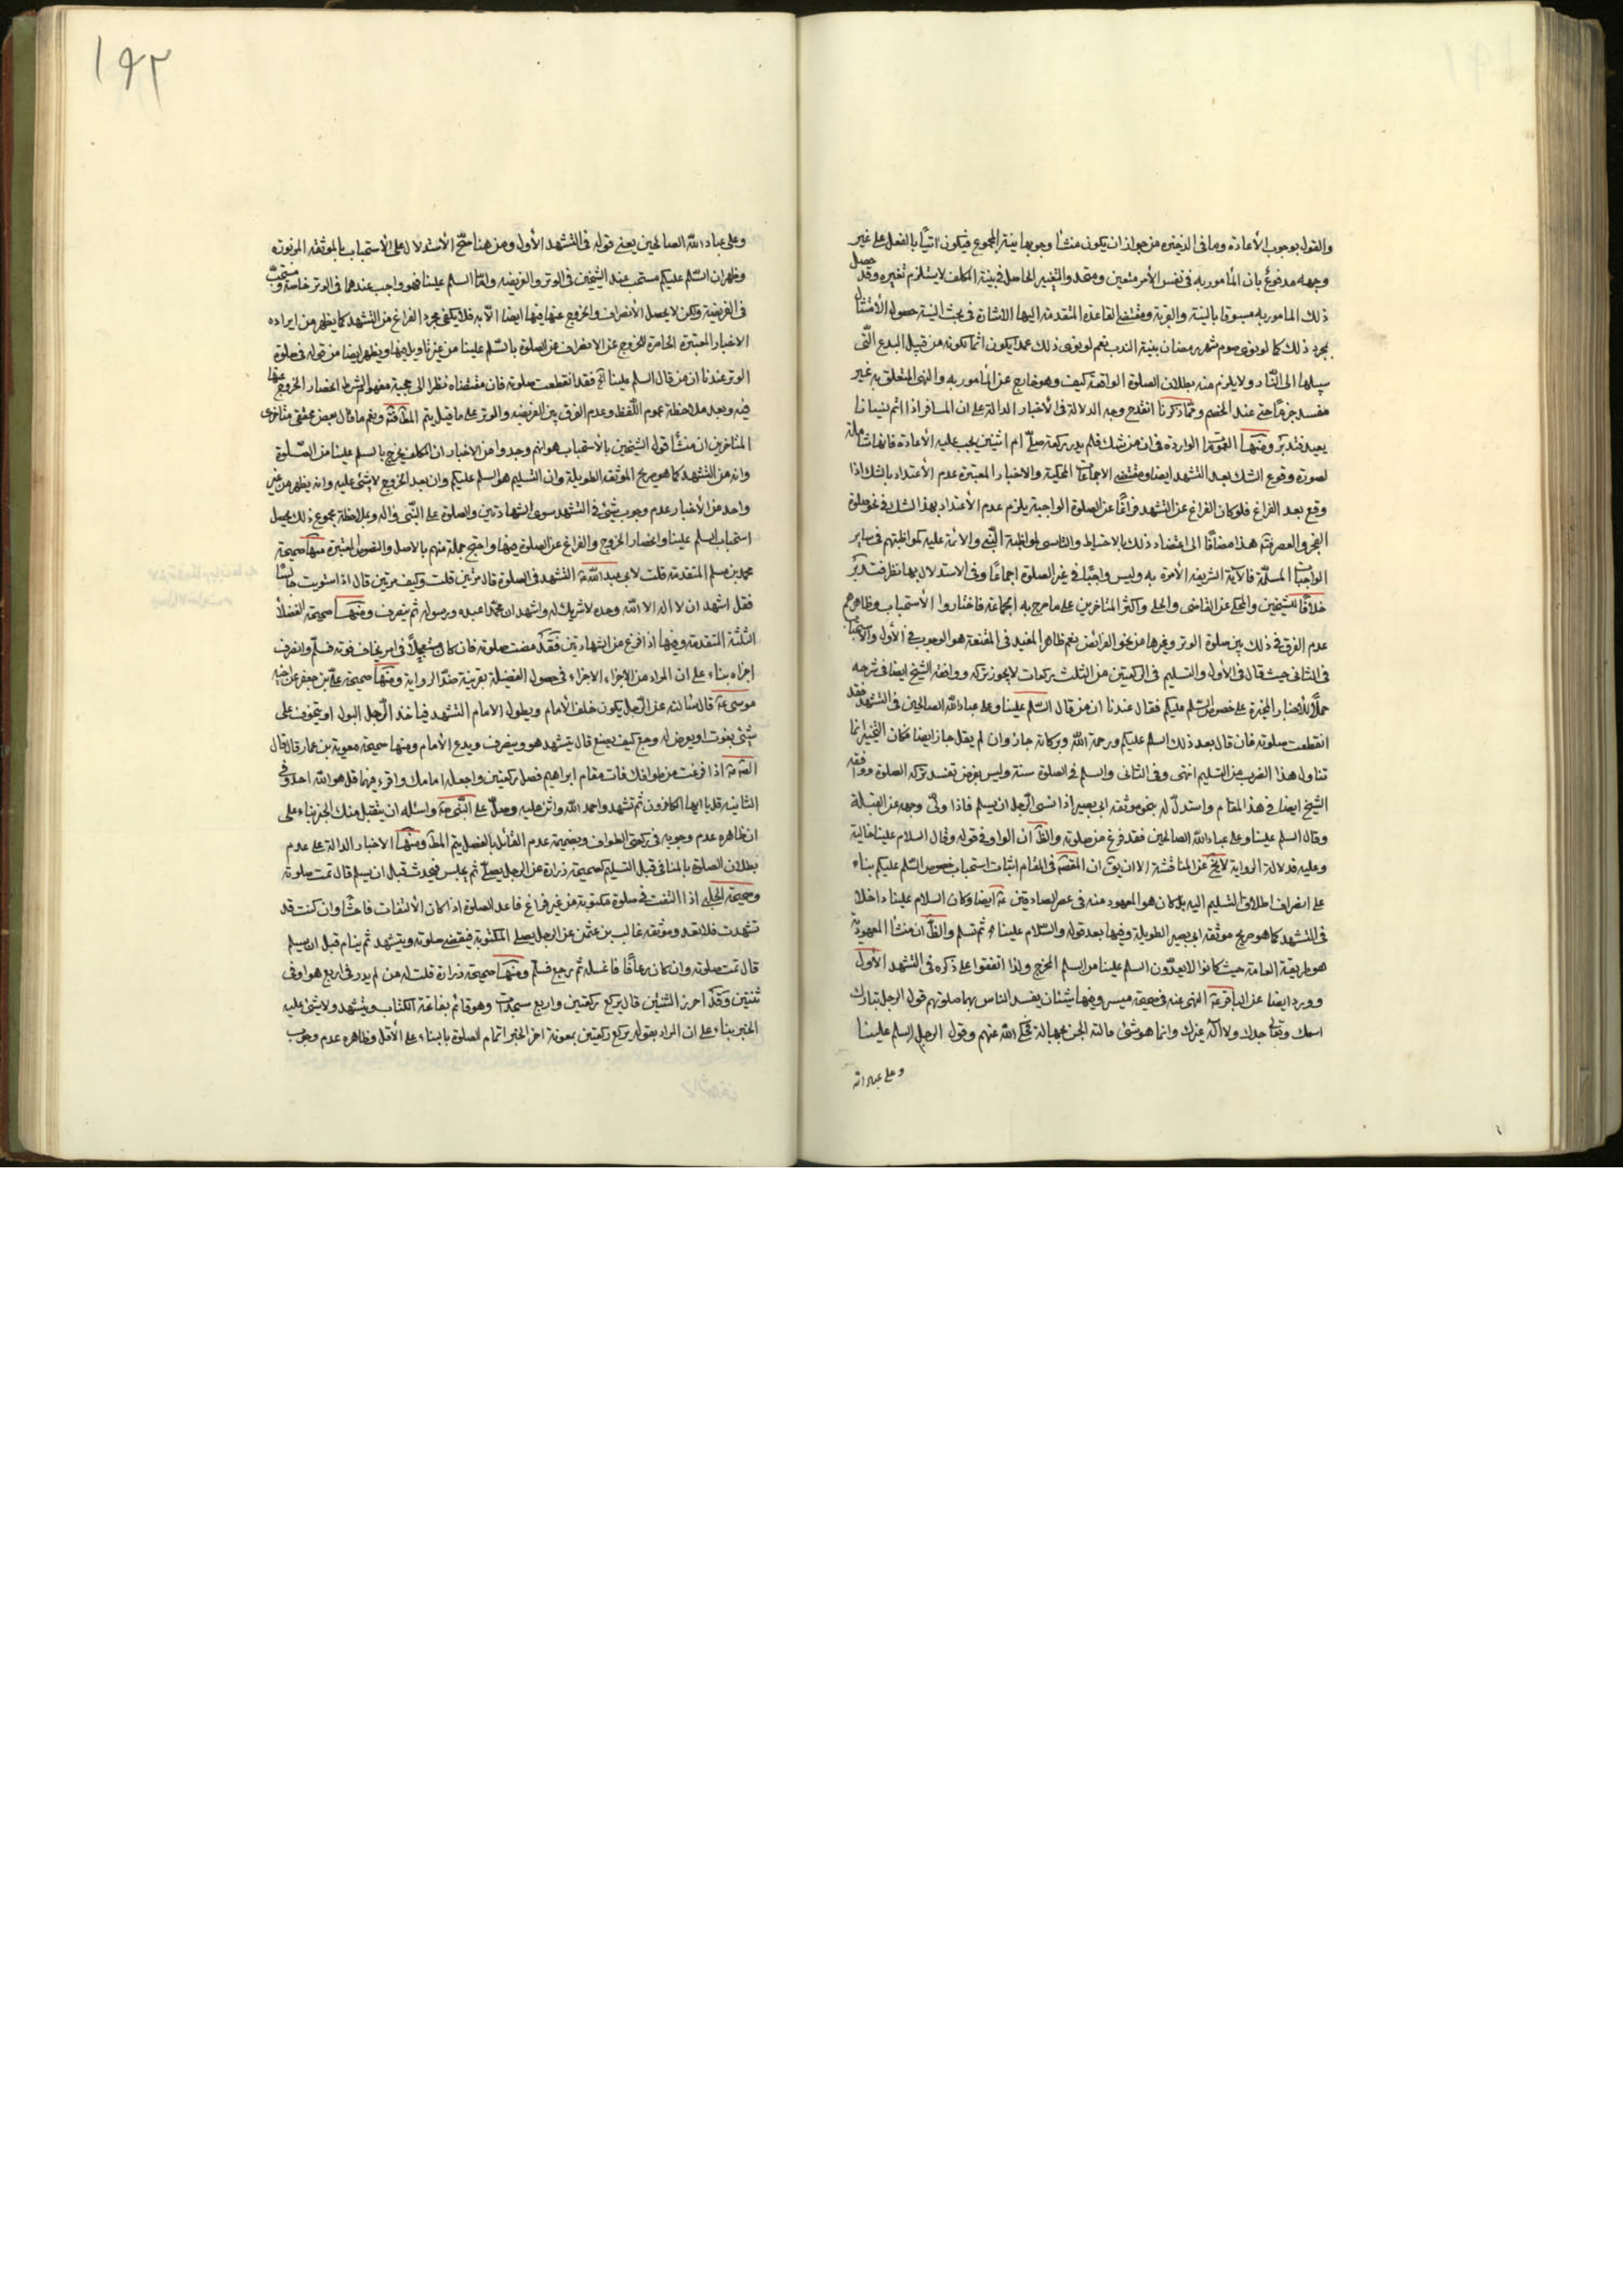 والقول بوجوب الأعادة وما فى الذخيرة من جواز ان يكون منشأ وجوبها نية المجموع فيكون اتيا بالفعل على غير
وجهه مدفوع بان المأمور به فى نفس الأمر متعين ومتحد والتغيير الحاصل فى نية المكلف لا يستلزم تغيره وقد حصل
ذلك المامور به مسبوقا بالنية والقربة ومقتضى القاعدة المتقدمة اليها الاشارة فى بحث النية حصول الأمتثال
بمجرد ذلك كما لو نوى صوم شهر رمضان بنية الندب نعم لو نوى ذلك عمدا يكون اثما لكونه من قبيل البدع التى
سبيلها الى النار ولا يلزم منه بطلان الصلوة الواقعة كيف وهو خارج عن المأمور به والنهى المتعلق به غير
مفسد جزما حتى عند الخصم ومما ذكرنا انقدح وجه الدلالة فى الأخبار الدالة على ان المسافر اذا اتم نسيانا
يعيد فتدبر ومنها الواردة فى ان من شك فلم يدر ركعة صلى ام اثنتين يجب عليه الأعادة فانها شاملة
لصورة وقوع الشك بعد التشهد ايضا ومقتضى الاجماعات المحكية والاخبار المعتبرة عدم الأعتداد بالشك اذا
وقع بعد الفراغ فلو كان الفراغ عن التشهد فراغا عن الصلوة الواجبة يلزم عدم الأعتداد بهذا الشك فى نحو صلوة
الفجر والعصر فته هذا مضافا الى اعتضاد ذلك بالاحتياط والتاسى لمواظبة النبى والائمة عليه كمواظبتهم فى ساير
الواجبات المسلمة فالآية الشريفة الأمرة به وليس واجبا فى غير الصلوة اجماعا وفى الاستدلال بها نظر فتدبر
خلافا للشيخين والمحكى عن القاضى والحلى واكثر المتأخرين على ما صرح به جماعة فاختاروا الأستحباب وظاهرهم
عدم الفرق فى ذلك بين صلوة الوتر وغيرها من نحو الفرائض نعم ظاهر المفيد فى المقنعة هو الوجوب فى الأول والاستحباب
فى الثانى حيث قال فى الأول والتسليم فى الركعتين من الثلث ركعات لا يجوز تركه ووافقه الشيخ ايضا فى شرحه
حملا للأخبار المجوزة على خصوص السلم عليكم فقال عندنا ان من قال السلم علينا وعلى عباد الله الصالحين فى التشهد فقد
انقطعت صلوته فان قال بعد ذلك السلم عليكم ورحمة الله وبركاته جاز وان لم يقل جاز ايضا فكان التخيير انما
تناول هذا الضرب من التسليم انتهى وفى الثانى والسلم فى الصلوة سنة وليس بفرض تفسد بتركه الصلوة ووافقه
الشيخ ايضا فى هذا المقام واستدل له بنحو موثقة ابى بصير اذا نسى الرجل ان يسلم فاذا ولى وجهه عن القبلة
وقال السلم علينا وعلى عباد الله الصالحين فقد فرغ من صلوته والظ ان الواو فى قوله وقال السلام علينا حالية
وعليه فدلالة الرواية لا يخ عن المناقشة الا ان يق ان المقصد فى المقام اثبات استحباب خصوص السلم عليكم بناء
على انصراف اطلاق التسليم اليه بل كان هو المعهود منه فى عصر الصادقين ع ايضا وكان السلام علينا داخلا
فى التشهد كما هو صريح موثقة ابى بصير الطويلة وفيها بعد قوله والسلام علينا ثم تسلم والظ ان منشأ المعهودية
هو طريقة العامة حيث كانوا لا يعدون السلم علينا من السلم المخرج ولذا اتفقوا على ذكره فى التشهد الأول
وورد ايضا عن الباقر ع النهى عنه فى صحيحة ميسر وفيها شيئان يفسد الناس بهما صلوتهم قول الرجل تبارك
اسمك وتعالى جدك ولا اله غيرك وانما هو شئ قالته الجن بجهالة فحكى الله عنهم وقول الرجل السلم علينا
وعلى عباد الله
١٩٢
وعلى عباد الله الصالحين يعنى قوله فى التشهد الأول ومن هنا صح الأستدلال على الأستحباب بالموثقة المزبورة
وظهر ان السلم عليكم مستحب عند الشيخين فى الوتر والفريضة واما السلم علينا فهو واجب عندهما فى الوتر خاصة ومستحب
فى الفريضة ولكن لا يحصل الأنصراف والخروج عنها فيها ايضا الا به فلا يكفى مجرد الفراغ من التشهد كما يظهر من ايراده
الاخبار المعتبرة الحاصرة للخروج عن الانصراف عن الصلوة بالسلم علينا من غير تأويل فيها ويظهر ايضا من قوله فى صلوة
الوتر عندنا ان من قال السلم علينا اه فقد انقطعت صلوته فان مقتضاه نظرا الى حجية مفهوم الشرط انحصار الخروج عنها
فيه وبعد ملاحظة عموم اللفظ وعدم الفرق بين الفريضة والوتر على ما قيل يتم المط فته ونعم ما قال بعض محققى متأخرى
المتأخرين ان منشأ قول الشيخين بالأستحباب هو انهم وجدوا من الاخبار ان المكلف يخرج بالسلم علينا من الصلوة
وانه من التشهد كما هو صريح الموثقة الطويلة وان التسليم هو السلم عليكم وان بعد الخروج لا شئ عليه وانه يظهر من غير
واحد من الأخبار عدم وجوب شئ فى التشهد سوى الشهادتين والصلوة على النبى واله وبملاحظة مجموع ذلك يحصل
استحباب السلم علينا وانحصار الخروج والفراغ عن الصلوة فيها واحتج جملة منهم بالاصل والنصوص المعتبرة منها صحيحة
محمد بن مسلم المتقدمة قلت لابى عبد الله ع التشهد فى الصلوة قال مرتين قلت وكيف مرتين قال اذا استويت جالسا
فقل اشهد ان لا اله الا الله وحده لا شريك له واشهد ان محمدا عبده ورسوله ثم ينصرف ومنها صحيحة الفضلاء
الثلثة المتقدمة وفيها اذا فرغ من الشهادتين فقد مضت صلوته فان كان مستعجلا فى امر يخاف فوته فسلم وانصرف
اجزاه بناء على ان المراد من الاجزاء الاجزاء فى حصول الفضيلة بقرينة صدر الرواية ومنها صحيحة على بن جعفر عن اخيه
موسى ع قال سالته عن الرجل يكون خلف الأمام ويطول الامام التشهد فيأخذ الرجل البول او يتخوف على
شئ يفوت او يعرض له وجع كيف يصنع قال يتشهد هو وينصرف ويدع الأمام ومنها صحيحة معوية بن عمار قال قال
الص ع اذا فرغت من طوافك فات مقام ابراهيم فصل ركعتين واجعله امامك واقرء فيهما قل هو الله احد وفى
الثانية قل يا ايها الكافرون ثم تشهد واحمد الله واثن عليه وصل على النبى ص واسئله ان يتقبل منك الخبر بناء على
ان ظاهره عدم وجوبه فى ركعتى الطواف وبضميمة عدم القائل بالفصل يتم المط ومنها الاخبار الدالة على عدم
بطلان الصلوة بالمنافى قبل التسليم كصحيحة زرارة عن الرجل يصلى ثم يجلس فيحدث قبل ان يسلم قال تمت صلوته
وصحيحة الحلبى اذا التفت فى صلوة مكتوبة من غير فراغ فاعد الصلوة اذا كان الألتفات فاحشا وان كنت قد
تشهدت فلا تعد وموثقة غالب بن عثمن عن الرجل يصلى المكتوبة فيقضى صلوته ويتشهد ثم ينام قبل ان يسلم
قال تمت صلوته وان كان رعافا فاغسله ثم رجع فسلم ومنها صحيحة زرارة قلت له من لم يدر فى اربع هو او فى
ثنتين وقد احرز الثنتين قال يركع ركعتين واربع سجدات وهو قائم بفاتحة الكتاب ويتشهد ولا شئ عليه
الخبر بناء على ان المراد بقوله يركع ركعتين بمعونة اخر الخبر اتمام الصلوة بالبناء على الأقل وظاهره عدم وجوب